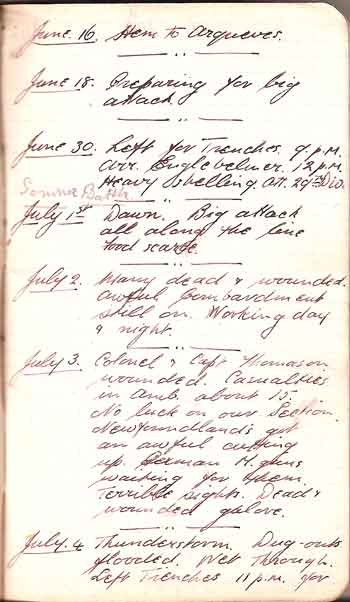 June. 16. Hem to Arqueves.
June 18. Preparing for big
attack.
June 30. Left for Trenches. 9. p.m.
arr. Englebelmer. 12 p.m.
Heavy shelling Att. 29th Div.
Somme Battle
July 1st Dawn. Big attack
all along the line
food scarse
July 2. Many dead & wounded.
awful bombardment
still on. Working day
& night.
July 3. Colonel & Capt Thomason
wounded. Casualties
in Amb. about 15.
No luck on our Section.
Newfoundlands got
an awful cutting
up. German M. guns
waiting for them.
Terrible sights. Dead &
wounded galore.
July. 4 Thunderstorm. Dug-outs
flooded. Wet through.
Left Trenches 11 p.m. for